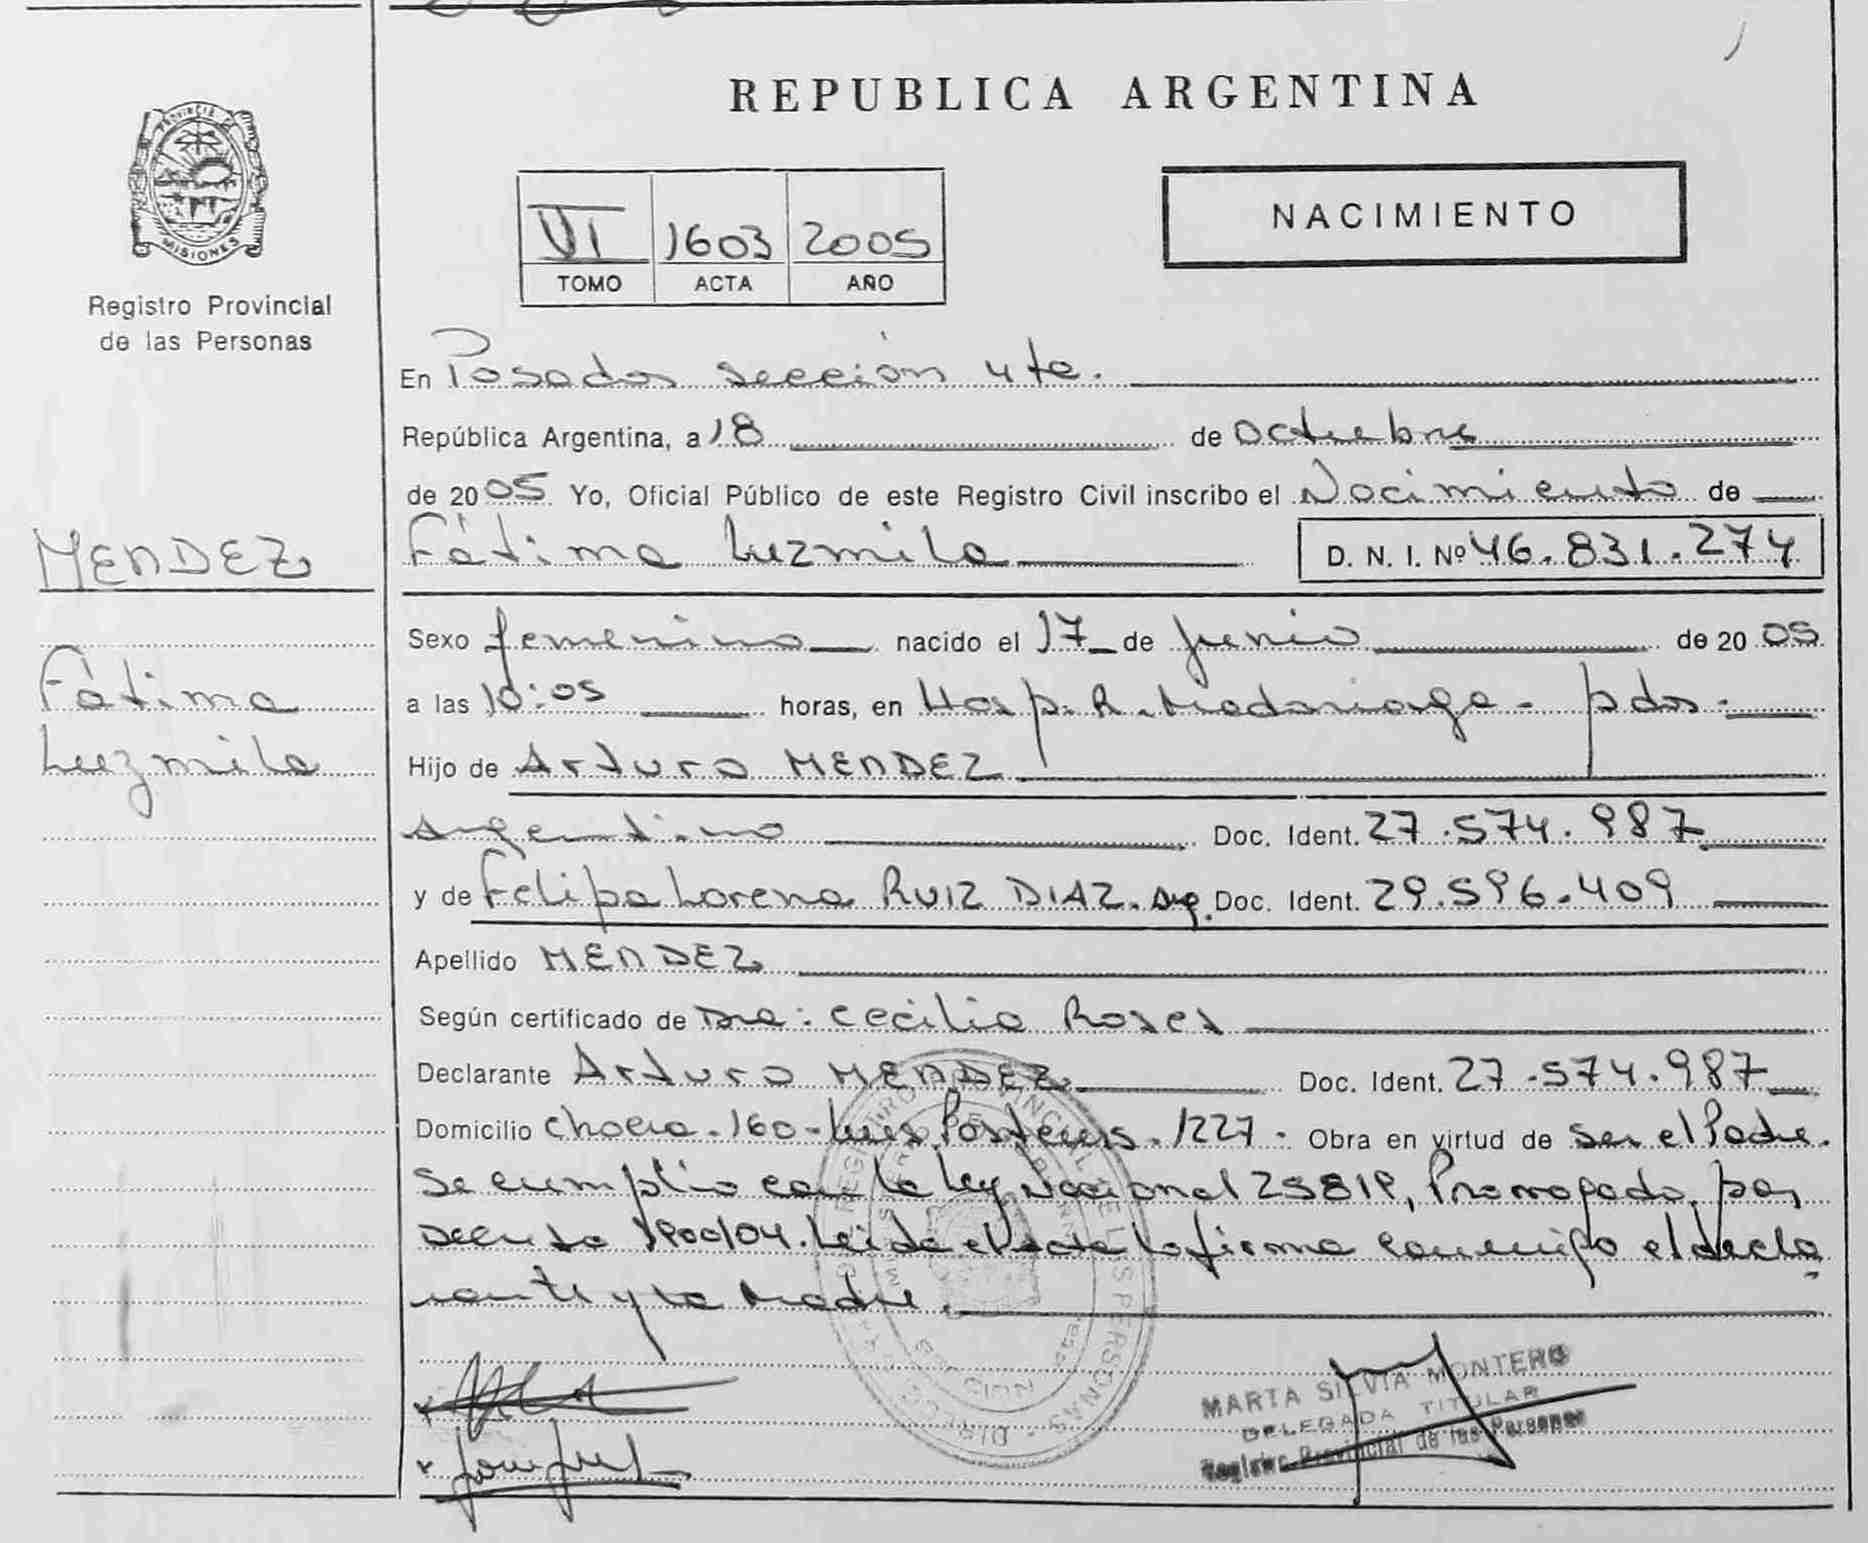 REPUBLICA ARGENTINA
PROVINCIA D
MISIONES
Registro Provincial
de las Personas
NACIMIENTO
VI 1603 2005
TOMO ACTA AÑO
En Posadas sección 4ta.
República Argentina, a 18 de Octubre
de 2005 Yo, Oficial Público de este Registro Civil inscribo el Nacimiento de
MENDEZ
Fátima Luzmila D. N. I. Nº 46.831.274
Sexo femenino nacido el 17 de Junio de 2005
Fátima
Luzmila
a las 10:05 horas, en Hosp. R. Madariaga - pdas.
Hijo de Arturo MENDEZ
argentino Doc. Ident. 27.574.987
y de Felipa Lorena RUIZ DIAZ. arg. Doc. Ident. 29.596.409
Apellido MENDEZ
Según certificado de Dra: Cecilia Roses
Declarante Arturo MENDEZ Doc. Ident. 27.574.987
Domicilio Chacra. 160 - Luis Pasteur. 1227. Obra en virtud de ser el Padre.
Se cumplio con la Ley Nacional 25819, Prorrogado por
Decreto 1900/04. Leida el acta la firma conmigo el decla
rante y la Madre.
MARTA SILVIA MONTERO
DELEGADA TITULAR
Registro Provincial de las Personas